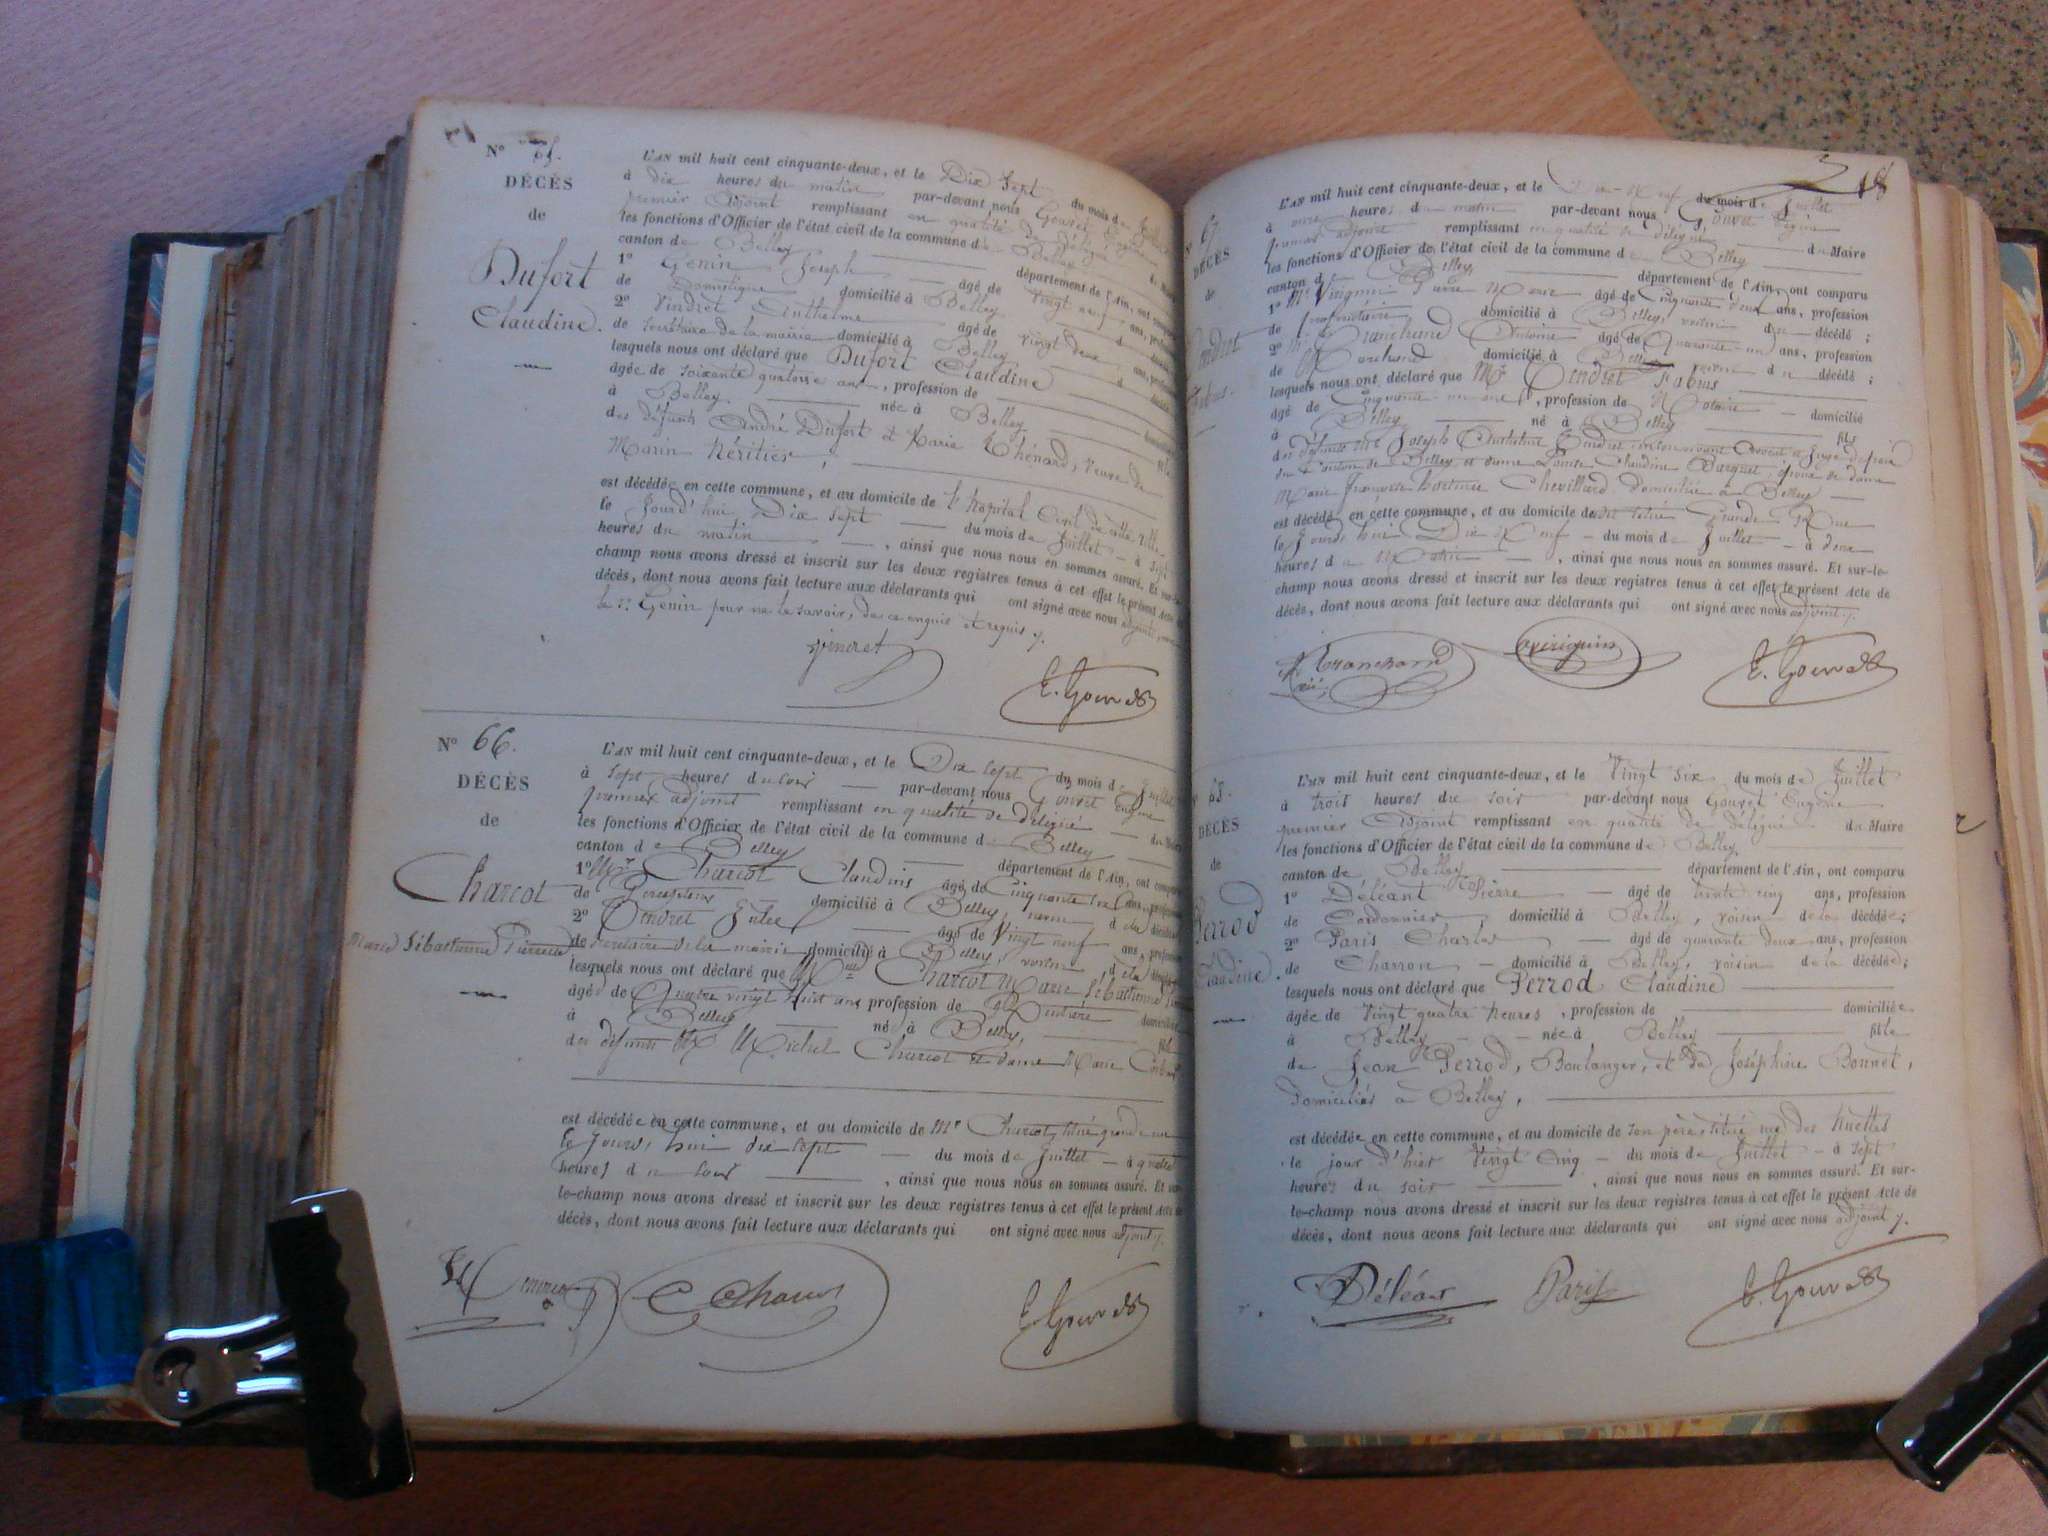 Nº 65.
DÉCÈS
de
Dufort
Claudine.
L'AN mil huit cent cinquante-deux, et le Dix Sept du mois de
à dix heures du matin par-devant nous Gouvet
premier adjoint remplissant en qualité de
les fonctions d'Officier de l'état civil de la commune de Belley
canton de Belley département de l'Ain, ont
1º Genin Joseph âgé de Vingt neuf ans,
de Domestique domicilié à Belley
2º Vindret Anthelme âgé de vingt deux ans,
de Secrétaire de la mairie domicilié à Belley
lesquels nous ont déclaré que Dufort Claudine
âgée de soixante quatorze ans, profession de
à Belley née à Belley
des défunts André Dufort et Marie Thénard, veuve de
Marin Héritier,
est décédée en cette commune, et au domicile de l'hopital Civil de cette ville
le Jourd'hui Dix Sept du mois de Juillet à sept
heures du matin, ainsi que nous nous en sommes assuré. Et
champ nous avons dressé et inscrit sur les deux registres tenus à cet effet le présent Acte
décès, dont nous avons fait lecture aux déclarants qui ont signé avec nous adjoint,
le Sr Genin pour ne le savoir, de ce enquis et requis
E. Gouvet
Nº 66.
DÉCÈS
de
Charcot
Marie Sébastienne Pierrette
L'AN mil huit cent cinquante-deux, et le Dix sept du mois de Juillet
à Sept heures du soir par-devant nous Gouvet Eugène
premier adjoint remplissant en qualité de délégué
les fonctions d'Officier de l'état civil de la commune de Belley
canton de Belley département de l'Ain, ont
1º Mr Charcot Claudius âgé de Cinquante ans,
de domicilié à Belley,
2º Jules âgé de Vingt neuf ans,
de Secrétaire de la mairie domicilié à Belley, voisin de la
lesquels nous ont déclaré que Charcot Marie Sébastienne
âgée de Quatre vingt huit ans profession de Rentière domiciliée
à Belley née à Belley,
des défunts Mr Michel Charcot et dame Marie
est décédée en cette commune, et au domicile de Mr Charcot, situé grande rue
le Jourd'hui dix sept du mois de Juillet à quatre
heures du soir, ainsi que nous nous en sommes assuré. Et
le-champ nous avons dressé et inscrit sur les deux registres tenus à cet effet le présent Acte de
décès, dont nous avons fait lecture aux déclarants qui ont signé avec nous adjoint
E. Gouvet
18
67.
DÉCÈS
de
L'AN mil huit cent cinquante-deux, et le Dix-Neuf du mois de Juillet
à onze heures du matin par-devant nous Gouvet Eugène
premier adjoint remplissant en qualité de délégué du Maire
les fonctions d'Officier de l'état civil de la commune de Belley
canton de Belley, département de l'Ain, ont comparu
1º Mr Pierre Marie âgé de Cinquante deux ans, profession
de propriétaire domicilié à Belley, voisin du décédé;
2º Mr Tranchand Antoine âgé de Quarante un ans, profession
de Marchand domicilié à Belley voisin du décédé;
lesquels nous ont déclaré que Mr Tendret Fabius
âgé de Cinquante un ans, profession de Notaire domicilié
à Belley né à Belley fils
des défunts Mr Joseph Tendret en son vivant avocat et juge de paix
du Canton de Belley et dame Claudine époux de dame
Marie Françoise hortense Chevillard domiciliée à Belley
est décédé en cette commune, et au domicile de situé Grande Rue
le Jourd'hui Dix Neuf du mois de Juillet à deux
heures du Matin, ainsi que nous nous en sommes assuré. Et sur-le-
champ nous avons dressé et inscrit sur les deux registres tenus à cet effet le présent Acte de
décès, dont nous avons fait lecture aux déclarants qui ont signé avec nous adjoint
Tranchand
E. Gouvet
68.
DÉCÈS
de
Perrod
Claudine.
L'AN mil huit cent cinquante-deux, et le Vingt Six du mois de Juillet
à trois heures du soir par-devant nous Gouvet Eugène
premier Adjoint remplissant en qualité de délégué du Maire
les fonctions d'Officier de l'état civil de la commune de Belley
canton de Belley département de l'Ain, ont comparu
1º Déléant Pierre âgé de trente cinq ans, profession
de Cordonnier domicilié à Belley, voisin de la décédée;
2º Paris Charles âgé de quarante deux ans, profession
de Charron domicilié à Belley, voisin de la décédée;
lesquels nous ont déclaré que Perrod Claudine
âgée de Vingt quatre heures, profession de domiciliée
à Belley née à Belley fille
de Jean Perrod, Boulanger, et de Joséphine Bonnet,
domiciliés à Belley,
est décédée en cette commune, et au domicile de son père situé rue des huettes
le jour d'hier Vingt Cinq du mois de Juillet à sept
heures du soir, ainsi que nous nous en sommes assuré. Et sur-
le-champ nous avons dressé et inscrit sur les deux registres tenus à cet effet le présent Acte de
décès, dont nous avons fait lecture aux déclarants qui ont signé avec nous adjoint
Déléant Paris E. Gouvet